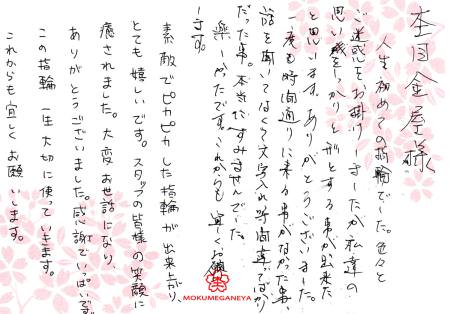 杢目金屋様
人生初めての指輪でした。色々と
ご迷惑をお掛けしましたが私達の
思い残をしっかりと形とする事が出来た
と思います。ありがとうございました。
一度も時間通りに来る事がなかった事、
話を聞いてなくて文字入れ時間違いばかり
だった事。本当にすみませんでした。
楽しかったです。これからも宜しくお願い
します。
素敵でピカピカした指輪が出来上がり、
とても嬉しいです。スタッフの皆様の笑顔に
癒されました。大変お世話になり、
ありがとうございました。感謝でいっぱいです。
この指輪一生大切に使っていきます。
これからも宜しくお願いします。
MOKUMEGANEYA